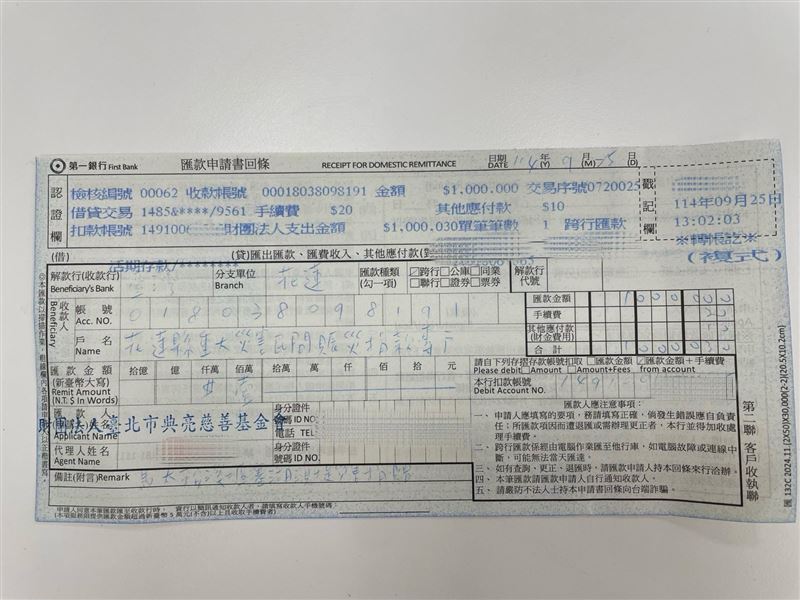 第一銀行 First Bank 匯款申請書回條 RECEIPT FOR DOMESTIC REMITTANCE 日期 DATE 114 年(Y) 9 月(M) 25 日(D)
認證欄
檢核編號 00062 收款帳號 00018038098191 金額 $1,000.000 交易序號0720025
借貸交易 1485&****/9561 手續費 $20 其他應付款 $10
扣款帳號 149100 財團法人支出金額 $1,000.030單筆筆數 1 跨行匯款
戳記欄
114年09月25日
13:02:03
※轉帳訖※
(複式)
(借) (貸)匯出匯款、匯費收入、其他應付款(對
活期存款/
解款行(收款行) Beneficiary's Bank 分支單位 Branch 花蓮 匯款種類 (勾一項) ☑跨行□公庫□同業 □聯行□證券□票券 解款行代號
收款人 Beneficiary
帳號 Acc. NO. 018038098191
戶名 Name 花蓮縣重大災害民間賑災捐款專戶
匯款金額 1000000
手續費 20
其他應付款 (財金費用) 10
合計
匯款金額 (新臺幣大寫) Remit Amount (N.T. $ In Words) 拾億 億 仟萬 佰萬 拾萬 萬 仟 佰 拾 元
請自下列存摺存款帳號扣取 □匯款金額 ☑匯款金額+手續費
Please debit □Amount □Amount+Fees from account
本行扣款帳號 Debit Account NO. 1491
匯款人 申請人姓名 Applicant Name 財團法人臺北市典亮慈善基金會
身分證件號碼 ID NO.
電話 TEL
代理人姓名 Agent Name
身分證件號碼 ID NO.
備註(附言)Remark
匯款人應注意事項:
一、申請人應填寫的要項,務請填寫正確,倘發生錯誤應自負責任;所匯款項因而遭退匯或需辦理更正者,本行並得加收處理手續費。
二、跨行匯款係經由電腦作業匯至他行庫,如電腦故障或連線中斷,可能無法當天匯達。
三、如有查詢、更正、退匯時,請匯款申請人持本回條來行洽辦。
四、本筆匯款請匯款申請人自行通知收款人。
五、請嚴防不法人士持本申請書回條向台端詐騙。
第二聯 客戶收執聯
匯 132C 2024.11.(2X50)X30,000(2-2)(20.5X10.2cm)